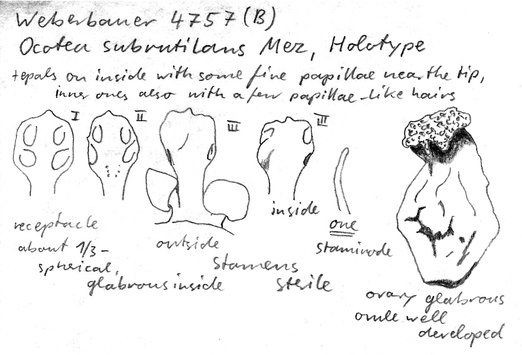 Weberbauer 4757 (B)
Ocotea subrutilans Mez, Holotype
tepals on inside with some fine papillae near the tip,
inner ones also with a few papillae-like hairs
I
II
III
III
inside
one
staminode
receptacle
about 1/3-
spherical,
glabrous inside
outside
stamens
sterile
ovary glabrous
ovule well
developed